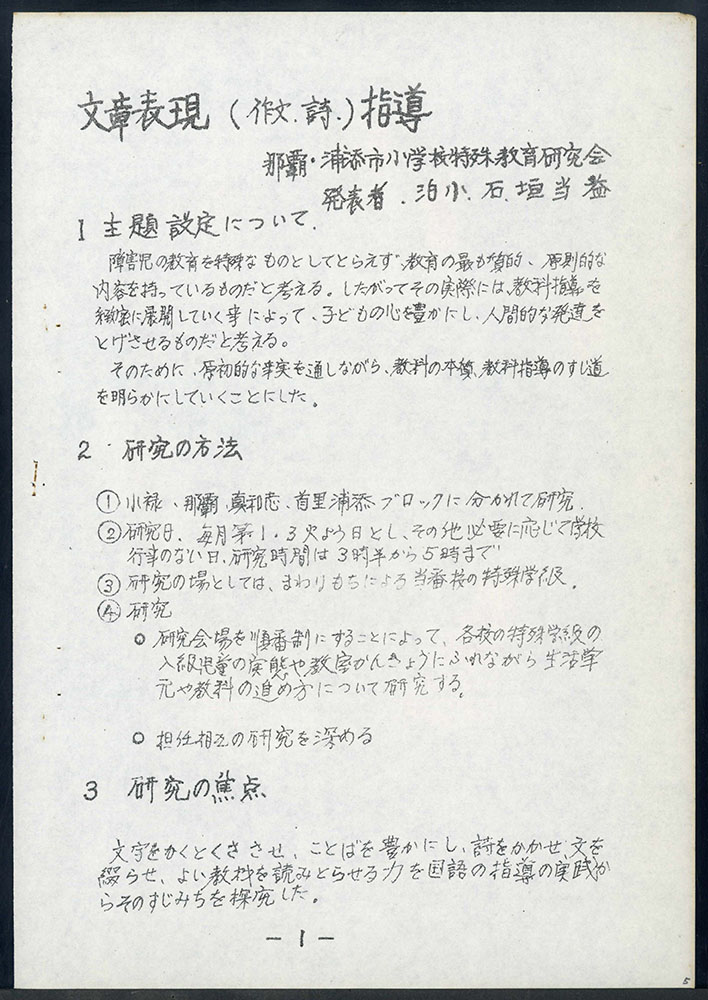 文章表現（作文.詩.）指導
那覇・浦添市小学校特殊教育研究会
発表者．泊小．石．垣当益
1 主題設定について．
障害児の教育を特殊なものとしてとらえず、教育の最も質的、原則的な
内容を持っているものだと考える。したがってその実際には、教科指導を
緻密に展開していく事によって、子どもの心を豊かにし、人間的な発達を
とげさせるものだと考る。
そのために、原初的な事実を通しながら、教科の本質、教科指導のすじ道
を明らかにしていくことにした。
2 研究の方法
① 小禄、那覇、真和志、首里浦添、ブロックに分かれて研究．
② 研究日、毎月第1・3火よう日とし、その他必要に応じて学校
行事のない日、研究時間は3時半から5時まで
③ 研究の場としては、まわりもちによる当番校の特殊学級．
④ 研究
○ 研究会場を順番制にすることによって、各校の特殊学級の
入級児童の実態や教室かんきょうにふれながら生活単
元や教科の進め方について研究する。
○ 担任相互の研究を深める
3 研究の焦点
文字をかくとくさせ、ことばを豊かにし、詩をかかせ、文を
綴らせ、よい教材を読みとらせる力を国語の指導の実践か
らそのすじみちを探究した。
－1－
5